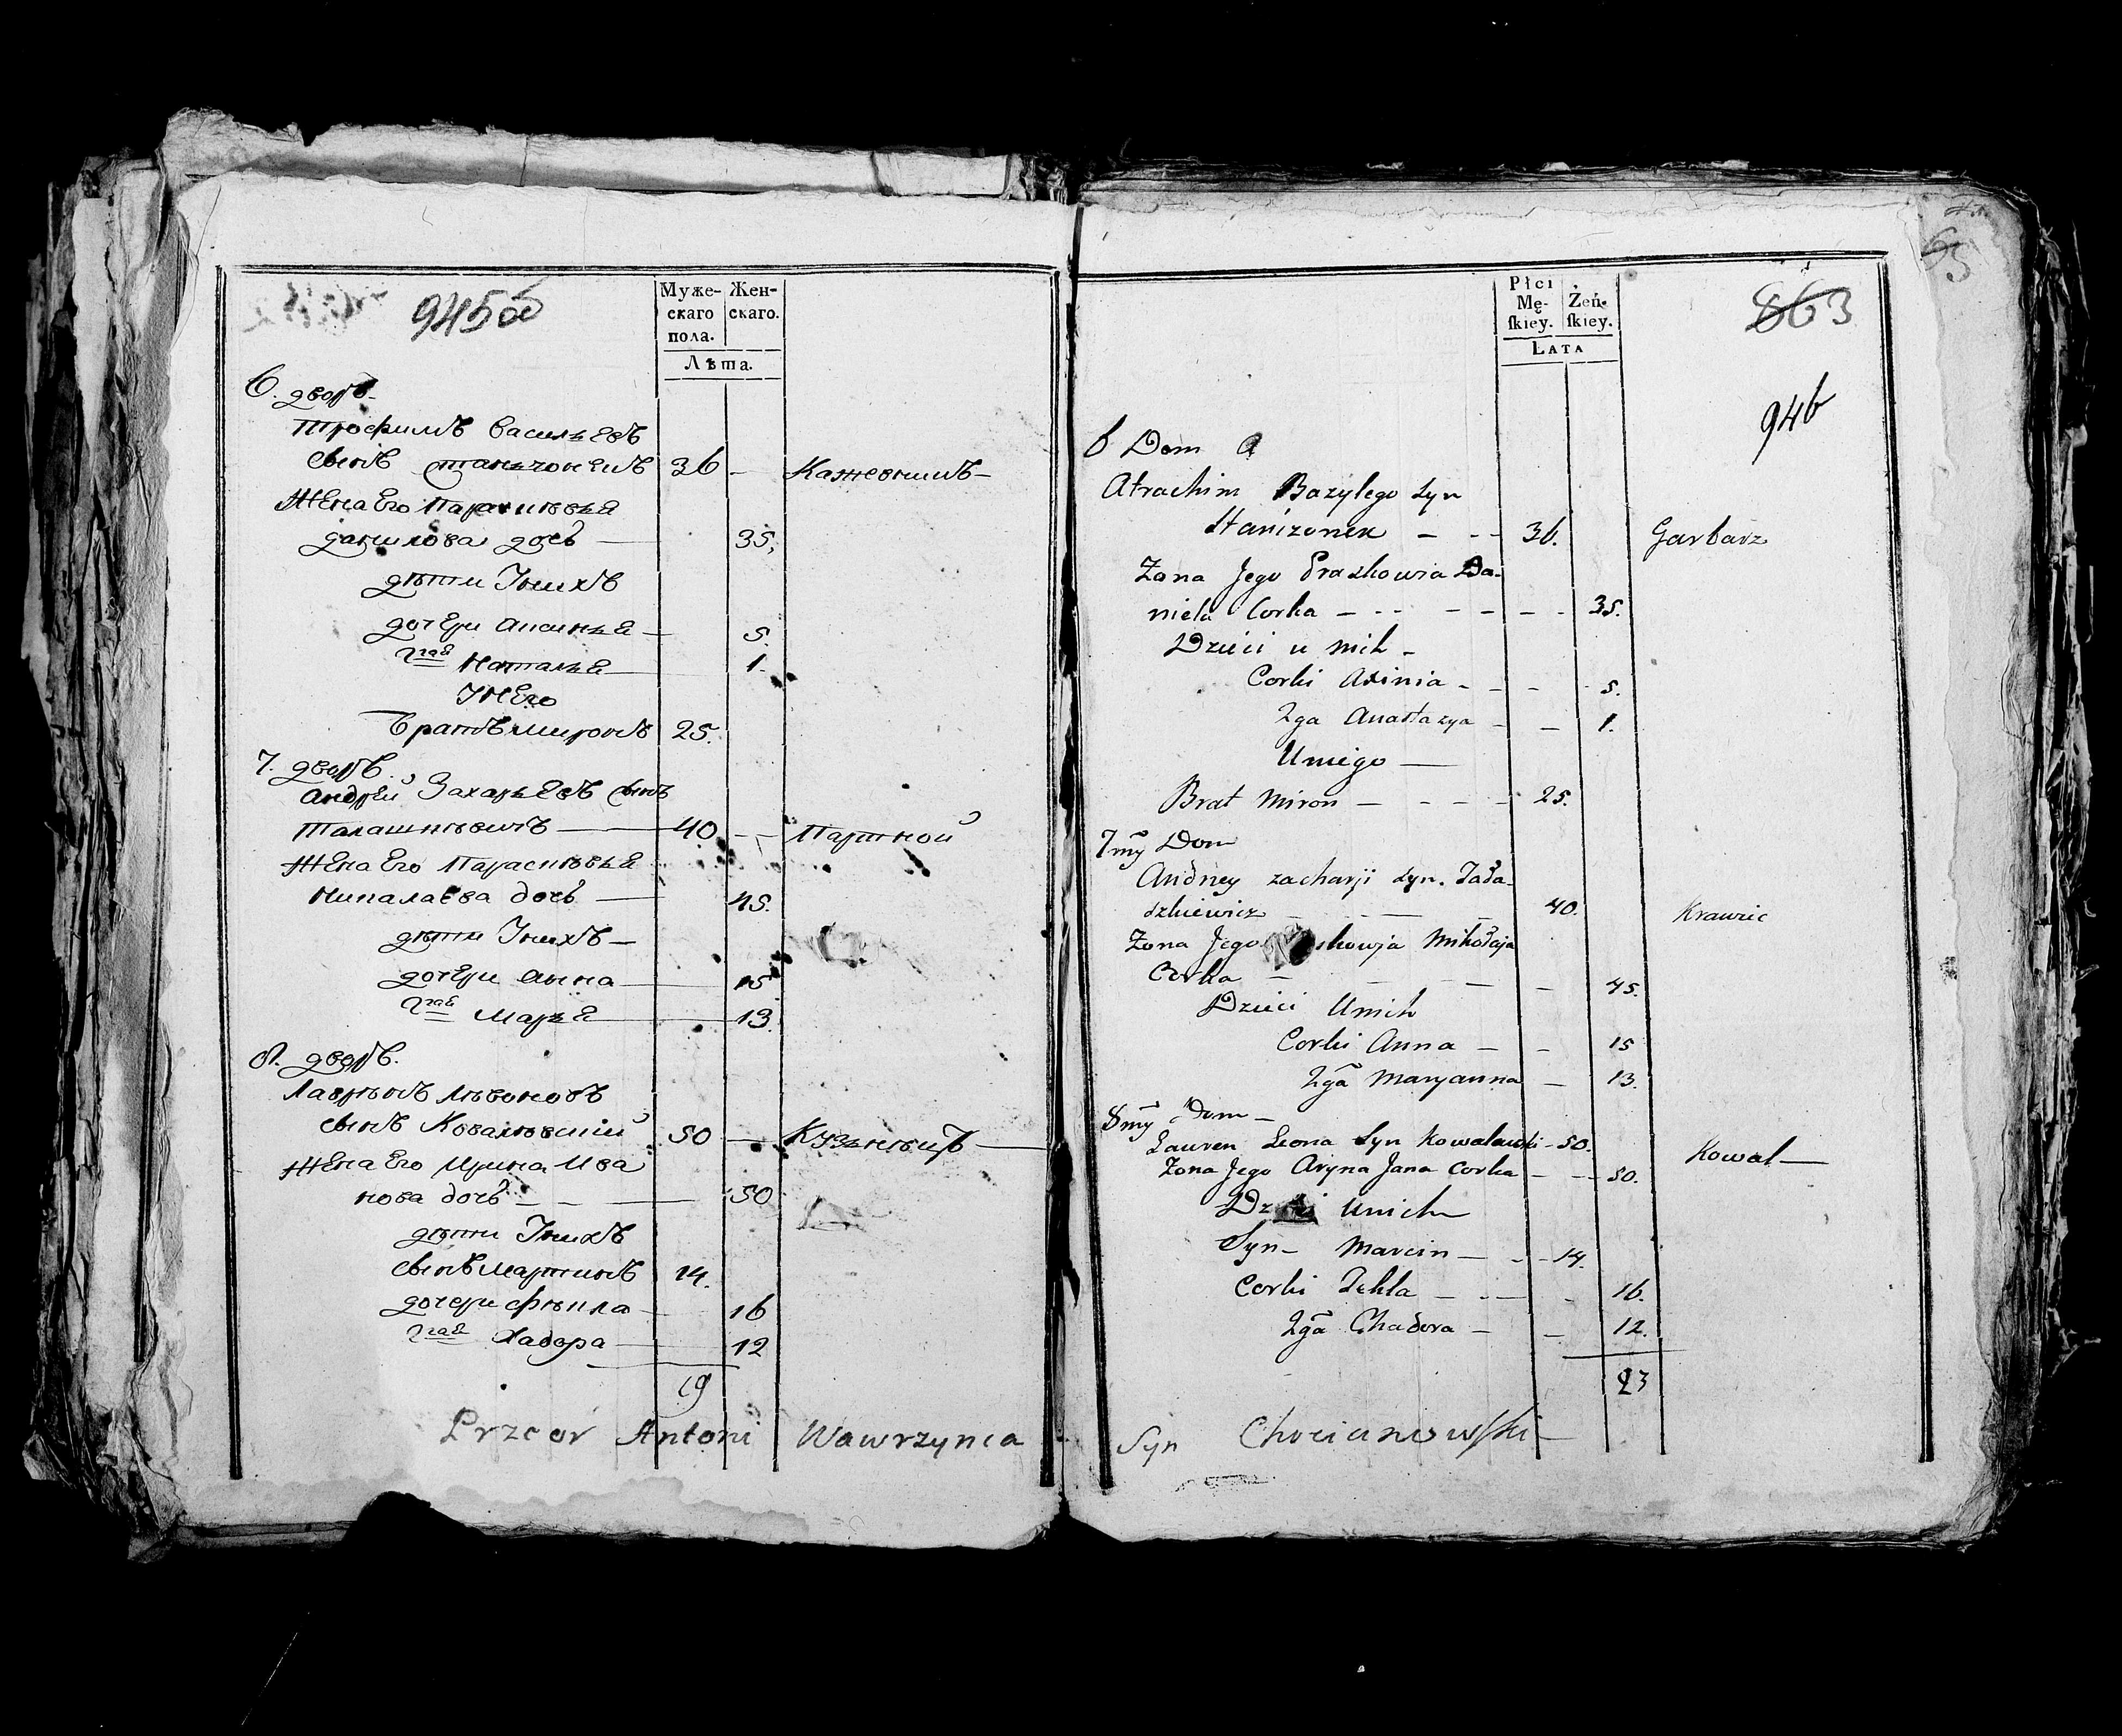 945об
Муже-
скаго
пола.
Жен-
скаго.
Лѣта.
6. дворъ.
Трофимъ Васильевъ
сынъ Станчонекъ 36 — Кажевникъ —
Жена Его Парасковья
данилова дочь — 35.
дѣти Унихъ
дочери Аксинья — 5.
2гая Наталья — 1.
УнЕго
братъ миронъ 25.
7. дворъ.
андрей Захарьевъ сынъ
Талашкевичъ — 40 — Партной
Жена Его Парасковья
Николаева дочь — 45.
дѣти Унихъ —
дочери анна — 15
2гая Марья — 13.
8. дворъ.
Лаврынъ Левоновъ
сынъ Ковалевский 50 — Кузьнецъ —
Жена Его Ирина Ива
нова дочь — — 50
дѣти Унихъ
сынъ мартинъ 14.
дочери Фекла — 16
2гая Хадора — 12
19
Przeor Antoni Wawrzynca
Płci
Mę-
ſkiey.
Żeń-
ſkiey.
Lata
863
95
94b
6 Dom
Atrachim Bazylego Syn
Stanizonek — - - 36. Garbarz
Zona Jego Praskowia Da-
niela Corka — - - - - - - 35.
Dzieci u nich -
Corki Axinia - - - - 5.
2ga Anastazya - - 1.
Uniego —
Brat Miron — - - - - 25.
7my Dom
Andrey zacharji syn. Tała-
szkiewicz - - — - 40. Krawiec
Zona Jego skowja Mikołaja
Corka — - - - - 45.
Dzieci Unich
Corki Anna — - 15
2gã Maryanna — 13.
8my Dom —
Lauren Leona Syn Kowalewski - 50. Kowal —
Zona Jego Aryna Jana Corka - - - 50.
Unich
Syn - Marcin — - - 14.
Corki Tekla — - — - 16.
2gã Chadora — - 12.
23
Syn Chocianowſki —